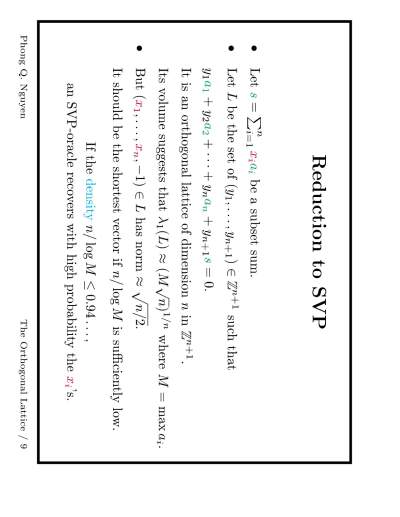 Reduction to SVP
• Let s = ∑ⁿᵢ₌₁ xᵢaᵢ be a subset sum.
• Let L be the set of (y₁, . . . , yₙ₊₁) ∈ ℤⁿ⁺¹ such that
y₁a₁ + y₂a₂ + · · · + yₙaₙ + yₙ₊₁s = 0.
It is an orthogonal lattice of dimension n in ℤⁿ⁺¹.
Its volume suggests that λ₁(L) ≈ (M√n)¹/ⁿ where M = max aᵢ.
• But (x₁, . . . , xₙ, −1) ∈ L has norm ≈ √n/2.
It should be the shortest vector if n/ log M is sufficiently low.
If the density n/ log M ≤ 0.94 . . . ,
an SVP-oracle recovers with high probability the xᵢ's.
Phong Q. Nguyen
The Orthogonal Lattice / 9